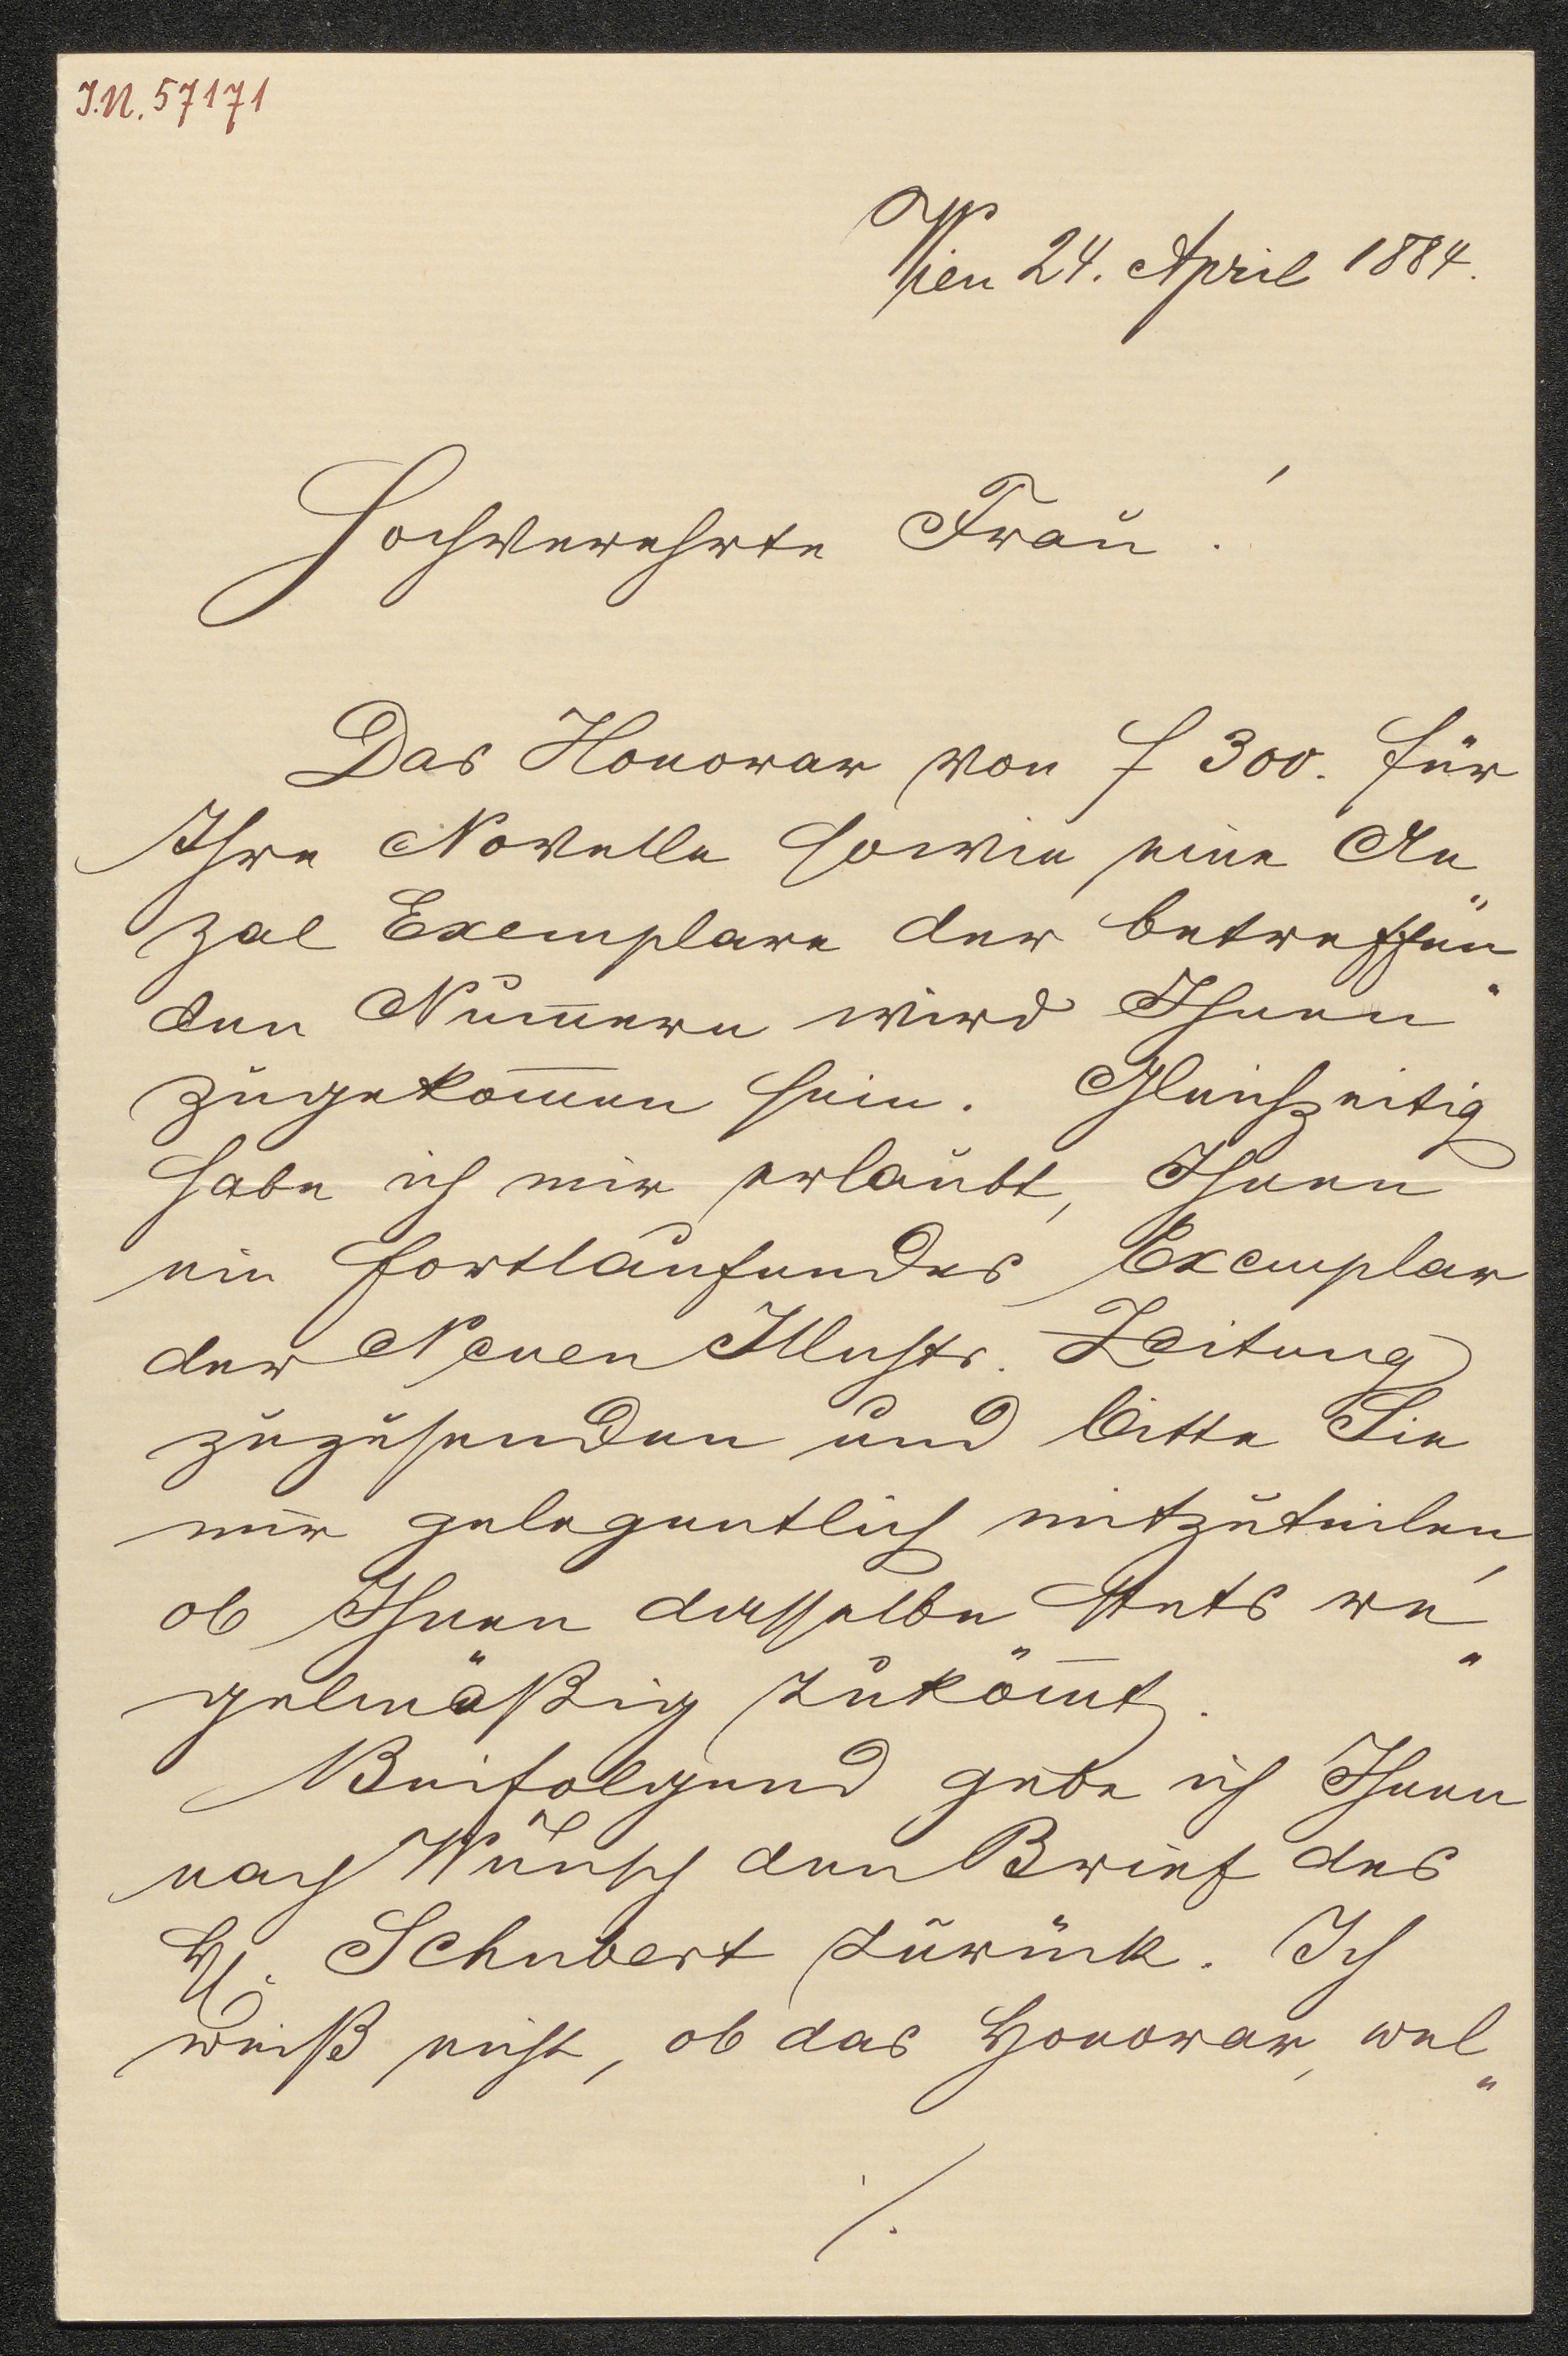 I.N. 57171
Wien 24. April 1884.
Hochverehrte Frau!
Das Honorar von f 300. für
Ihre Novelle sowie eine An„
zal Exemplare der betreffen„
den Num̅ern wird Ihnen
zugekom̅en sein. Gleichzeitig
habe ich mir erlaubt, Ihnen
ein fortlaufendes Exemplar
der Neuen Illustr. Zeitung
zuzusenden und bitte Sie
mir gelegentlich mitzuteilen,
ob Ihnen dasselbe stets re„
gelmäßig zuköm̅t.
Beifolgend gebe ich Ihnen
nach Wunsch den Brief des
H. Schubert zurück. Ich
weiß nicht, ob das Honorar, wel„
./.